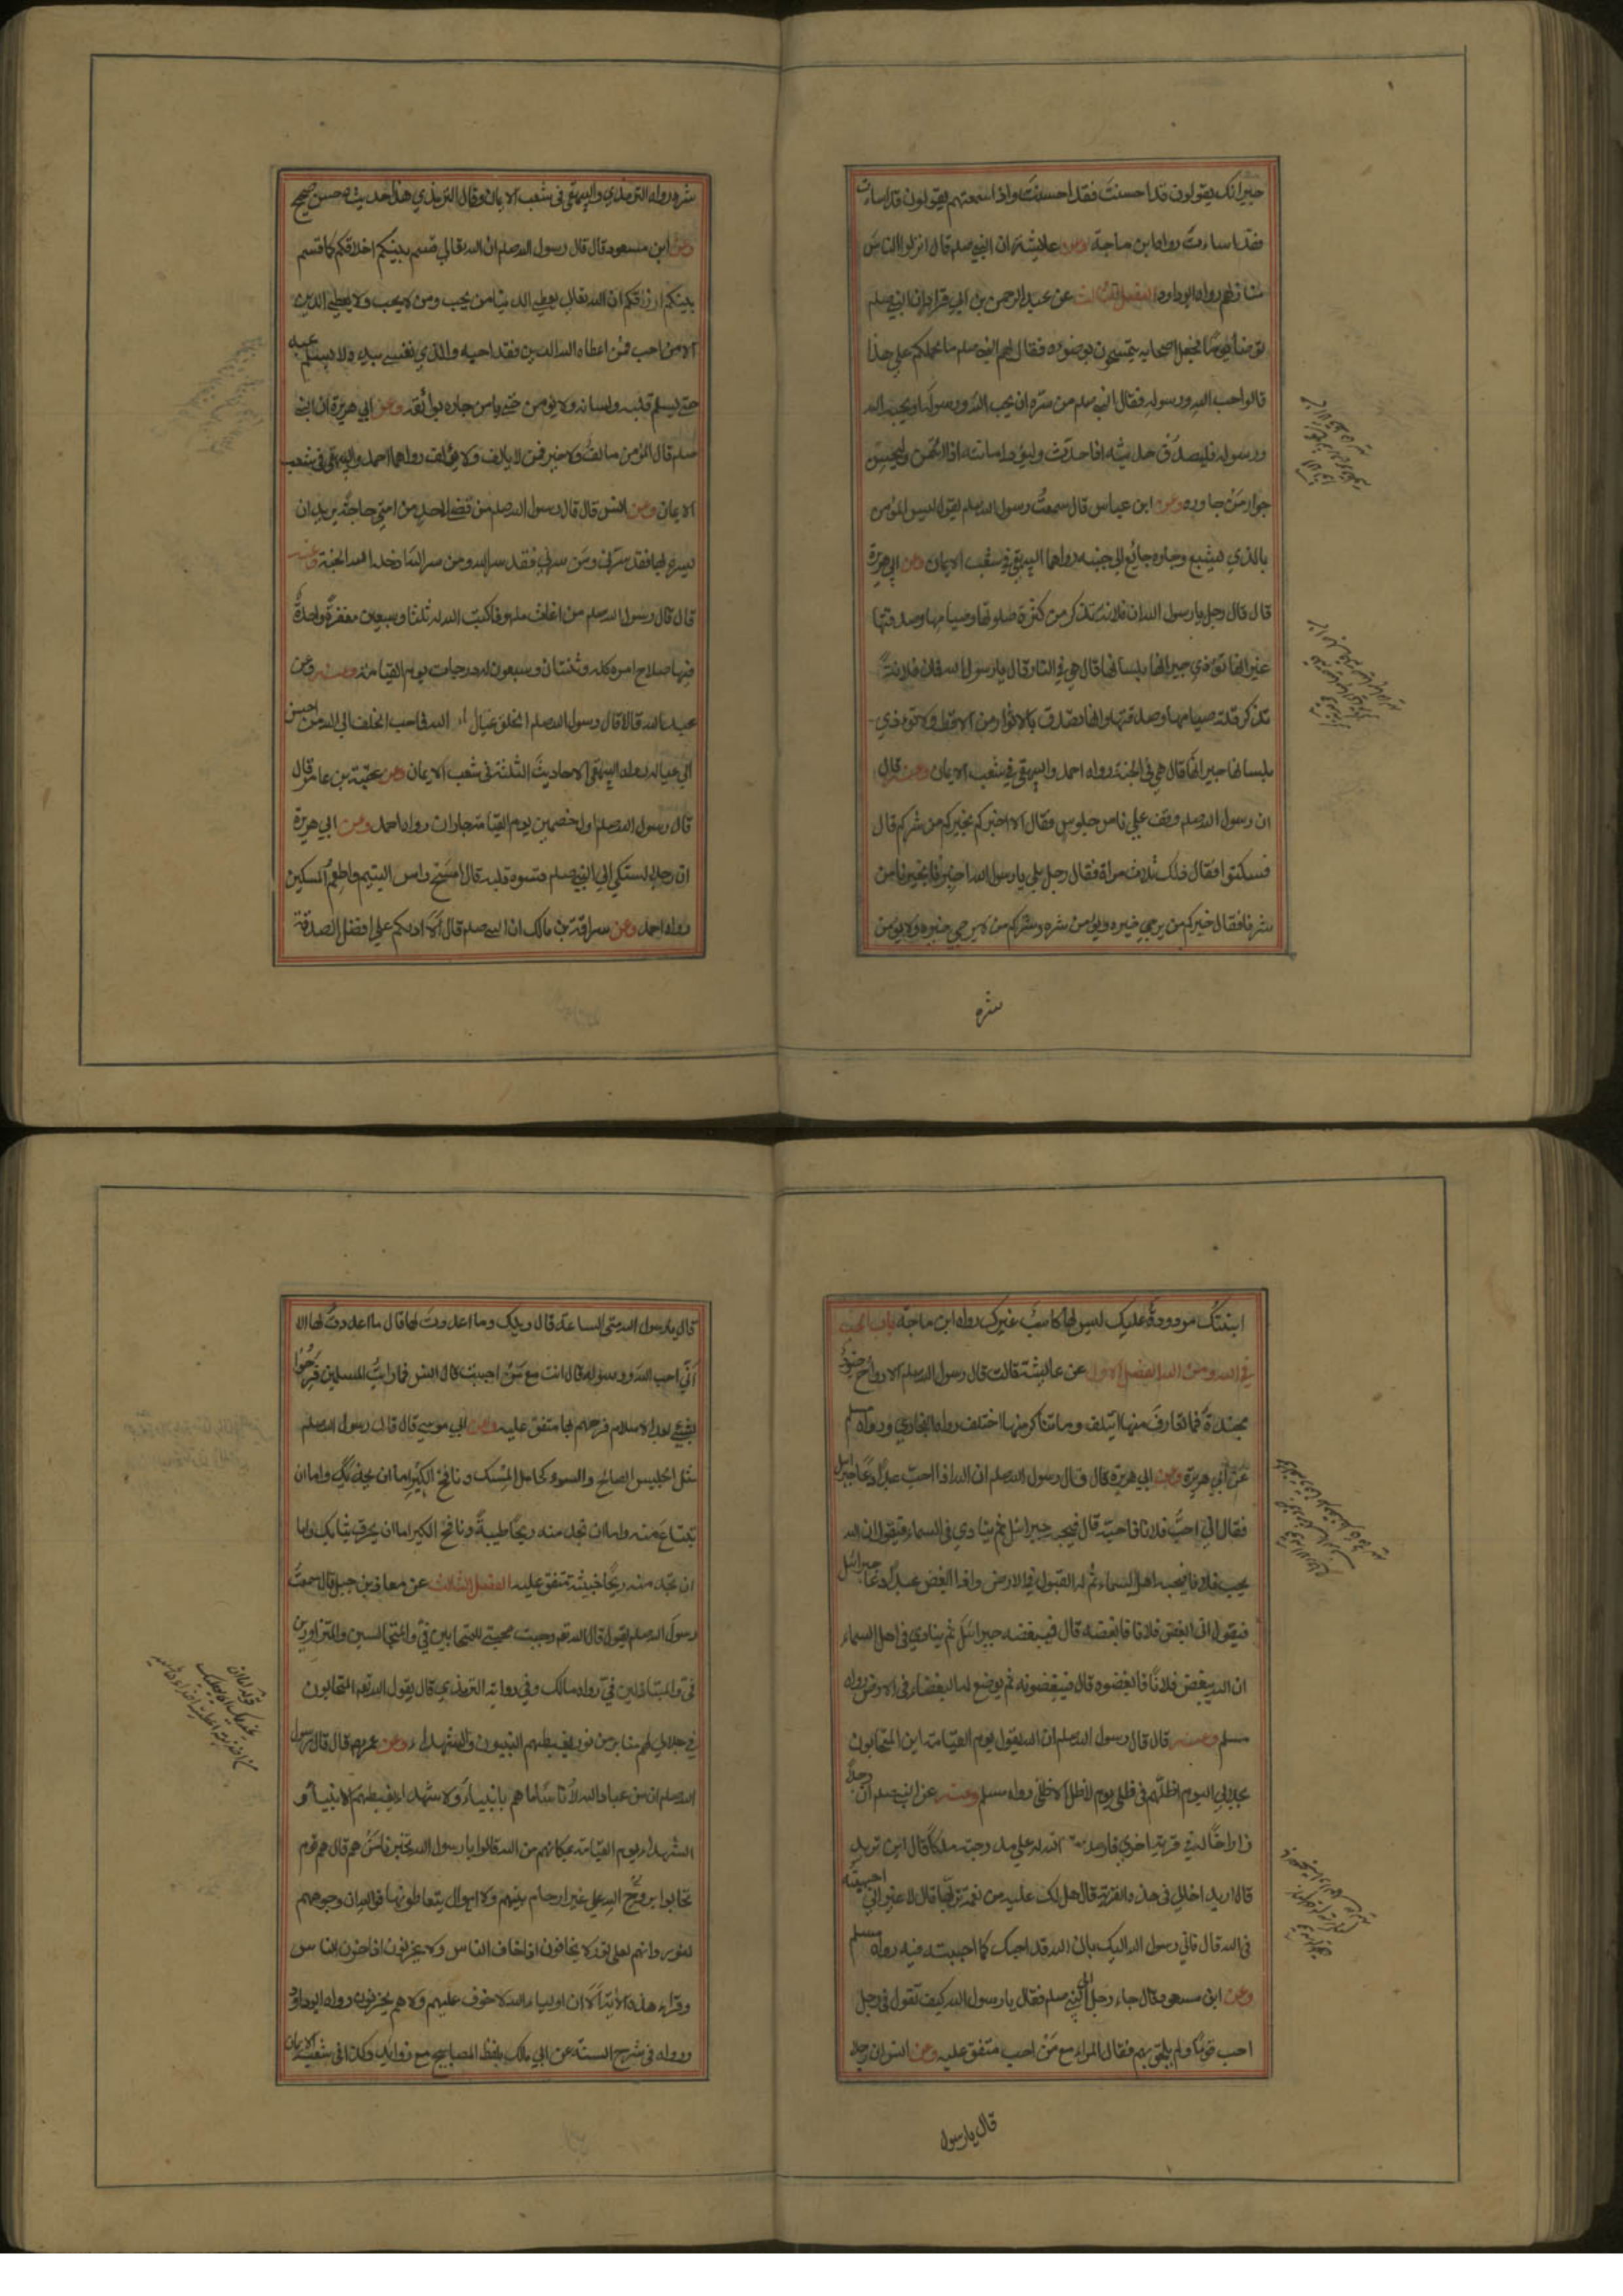 جيرانك يقولون قد احسنتَ فقد احسنتَ واذا سمعتهم يقولون قد اساءت
فقد اساءتَ رواه ابن ماجة وعن عايشة ان النبي صلم قال انزلوا الناسَ
منازلهم رواه ابو داود الفصل الثالث عن عبد الرحمن بن ابي قراد ان النبي صلم
توضأ يومًا فجعل اصحابه يتمسحون بوضوءه فقال لهم النبي صلم ما يحملكم على هذا
قالوا حب الله ورسوله فقال النبي صلم من سرّه ان يحب الله ورسوله او يحبه الله
ورسوله فليصدُق حديثه اذا حدّث وليؤد امانته اذا ائتمن وليحسن
جوار مَن جاوره وعن ابن عباس قال سمعتُ رسول الله صلم يقول ليس المؤمن
بالذي يشبع وجاره جائع الى جنبه رواهما البيهقي في شعب الايمان وعن ابي هريرة
قال قال رجل يا رسول الله ان فلانة تذكر من كثرة صلوتها وصيامها وصدقتها
غير انها تؤذي جيرانها بلسانها قال هي في النار قال يا رسول الله فان فلانةً
تذكر قلة صيامها وصدقتها وانها تصدق بالاثوار من الاقط ولا توذي
بلسانها جيرانها قال هي في الجنة رواه احمد والبيهقي في شعب الايمان وعن قال
ان رسول الله صلم وقف على ناس جلوس فقال الا اخبركم بخيركم من شركم قال
فسكتوا فقال ذلك ثلاث مراة فقال رجل بلى يا رسول الله اخبرنا بخيرنا من
شرنا فقال خيركم من يرجى خيره ويؤمن شره وشركم من لا يرجى خيره ولا يؤمن
شره
شره رواه الترمذي والبيهقي في شعب الايمان وقال الترمذي هذا حديث حسن صحيح
وعن ابن مسعود قال قال رسول الله صلم ان الله تعالى قسم بينكم اخلاقكم كما قسم
بينكم ارزاقكم ان الله تعالى يعطي الدنيا من يحب ومن لا يحب ولا يعطي الدين
الا من احب فمن اعطاه الله الدين فقد احبه والذي نفسي بيده لا يسلم عبد
حتى يسلم قلبه ولسانه ولا يؤمن حتى يامن جاره بوائقه وعن ابي هريرة ان النبي
صلم قال المؤمن مالفٌ ولا خير فمن لا يالف ولا يؤلف رواهما احمد والبيهقي في شعب
الايمان وعن انس قال قال رسول الله صلم من قضى لاحد من امتي حاجةً يريد ان
يسره بها فقد سرّني ومن سرني فقد سر الله ومن سر الله ادخله الله الجنة وعنه
قال قال رسول الله صلم من اغاث ملهوفا كتب الله له ثلثا وسبعين مغفرةً واحدةٌ
فيها صلاح امره كله وثنتان وسبعون له درجات يوم القيامة وعنه وعن
عبد الله قالا قال رسول الله صلم الخلق عيال الله فاحب الخلف الى الله من احسن
الى عياله رواه البيهقي الاحاديث الثلثة في شعب الايمان وعن عقبة بن عامر قال
قال رسول الله صلم اول خصمين يوم القيامة جاران رواه احمد وعن ابي هريرة
ان رجلا اشتكى الى النبي صلم قسوه قلبه قال امسَح راس اليتيم واطعم المسكين
رواه احمد وعن سراقة بن مالك ان النبي صلم قال ألا ادلكم على افضل الصدقة
ابنتكُ مردودةً عليك ليس لها كاسبٌ غيرك رواه ابن ماجة باب الحب
في الله ومن الله الفصل الاول عن عايشة قالت قال رسول الله صلم الارواح جنودٌ
مجندةٌ فما تعارفَ منها ايتلف وما تناكر منها اختلف رواه البخاري ورواه مسلم
عن ابي هريرة وعن ابي هريرة قال قال رسول الله صلم ان الله اذا احبّ عبدًا دعا جبرائيل
فقال اني احبُّ فلانا فاحبّه قال فيحبه جبرائيل ثم ينادي في السماء فيقول ان الله
يحب فلانا فيحبه اهل السماء ثم له القبول في الارض واذا ابغض عبدًا دعا جبرائيل
فيقول اني ابغض فلانا فابغضه قال فيبغضه جبرائيل ثم ينادي في اهل السماء
ان الله يبغض فلانًا فابغضوه قال فيبغضونه ثم يوضع له البغضاء في الارض رواه
مسلم وعنه قال قال رسول الله صلم ان الله يقول يوم القيامة اين المتحابون
بجلالي اليوم اظلّهم في ظلي يوم لا ظل الا ظلي رواه مسلم وعنه عن النبي صلم ان رجلا
زار اخًا له في قرية اخرى فارصد الله له على مدرجته ملكًا قال اين تريد
قال اريد اخًا لي في هذه القرية قال هل لك عليه من نعمة تربّها قال لا غير اني احببته
في الله قال فاني رسول الله اليك بان الله قد احبك كما احببته فيه رواه مسلم
وعن ابن مسعود قال جاء رجل الى النبي صلم فقال يا رسول الله كيف تقول في رجل
احب قومًا ولم يلحق بهم فقال المراء مع مَن احب متفق عليه وعن انس ان رجلا
قال يا رسول
قال يا رسول الله متى الساعة قال ويلك وما اعددت لها قال ما اعددتُ لها الا
اَنّي احب الله ورسوله قال انت مع مَن احببت قال انس فما رايتُ المسلمين فرحوا
بشيء بعد الاسلام فرحهم بها متفق عليه وعن ابي موسى قال قال رسول الله صلم
مثل الجليس الصالح والسوء كحامل المِسك ونافخ الكير اما ان يحذيك واما ان
تبتاع منه واما ان تجد منه ريحًا طيبةً ونافخ الكير اما ان يحرق ثيابك واما
ان تجد منه ريحًا خبيثة متفق عليه الفصل الثالث عن معاذ بن جبل قال سمعتُ
رسول الله صلم يقول قال الله تع وجبت محبتي للمتحابين فيّ والمتجالسين والمتزاورين
فيّ والمتباذلين فيّ رواه مالك وفي رواية الترمذي قال يقول الله تع المتحابون
في جلالي لهم منابر من نور يغبطهم النبيون والشهداء وعن عمر قال قال رسول
الله صلم ان من عباد الله لأناسًا ما هم بانبياءَ ولا شهداء يغبطهم الانبياء و
الشهداء يوم القيامة بمكانهم من الله قالوا يا رسول الله تخبرنا مَن هم قال هم قوم
تحابوا بروح الله على غير ارحام بينهم ولا اموال يتعاطونها فوالله ان وجوههم
لنور وانهم لعلى نور لا يخافون اذا خاف الناس ولا يحزنون اذا حزن الناس
وقراء هذه الآية ألا ان اولياء الله لا خوف عليهم ولا هم يحزنون رواه ابو داود
ورواه في شرح السنة عن ابي مالك بلفظ المصابيح مع زوايد وكذا في شعب الايمان